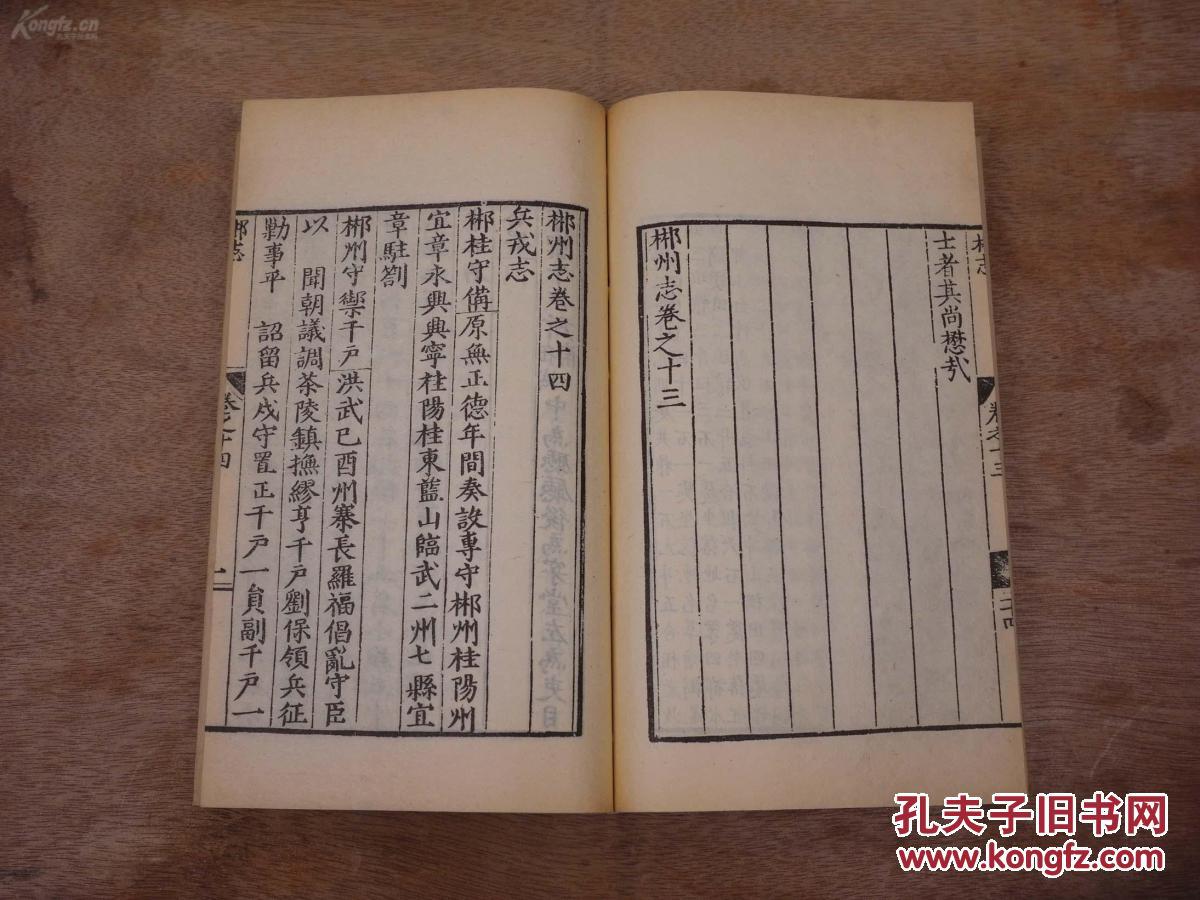 Kongfz.cn
孔夫子旧书网
士者其尚懋哉
郴州志卷之十三
卷之十三
二十四
郴州志卷之十四
兵戎志
郴桂守備原無正德年間奏設專守郴州桂陽州
宜章永興興寧桂陽桂東藍山臨武二州七縣宜
章駐劄
郴州守禦千戶洪武己酉州寨長羅福倡亂守臣
以 聞朝議調茶陵鎮撫繆亨千戶劉保領兵征
勦事平 詔留兵戍守置正千戶一員副千戶一
郴志
卷之十四
一
孔夫子旧书网
www.kongfz.com